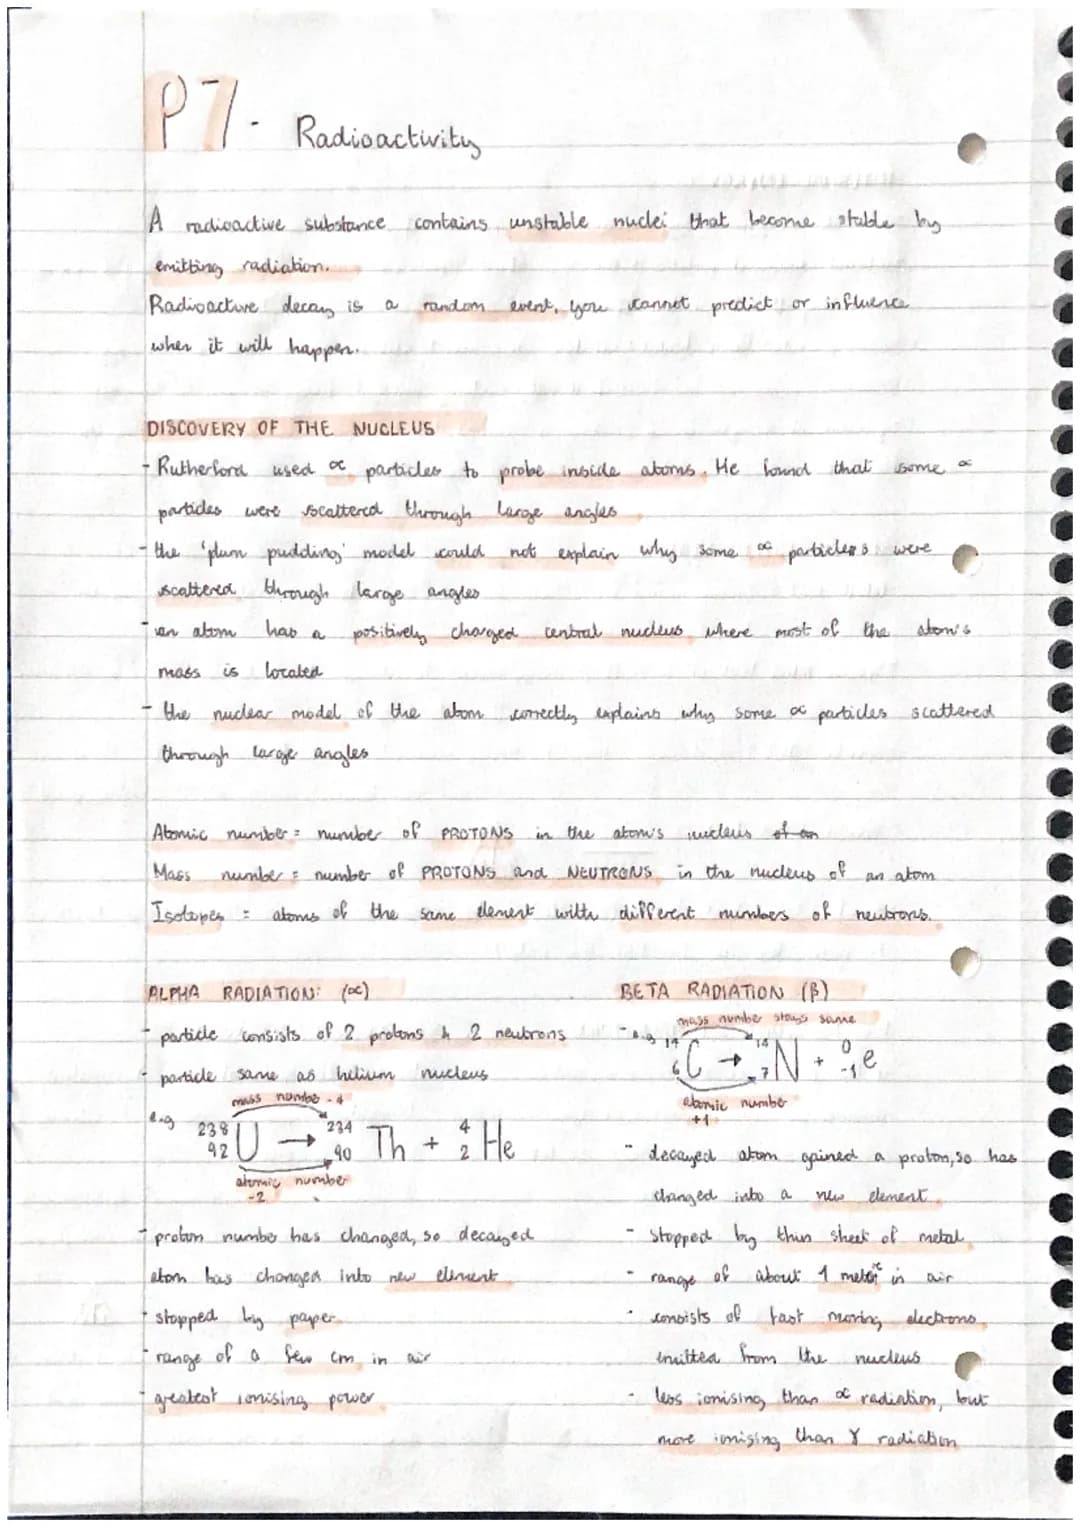 P7- Radioactivity
A radioactive substance contains unstable nuclei that become stable by
emitting radiation.
Radioactive decay is a random event, you cannot predict or influence
when it will happen.
DISCOVERY OF THE NUCLEUS
- Rutherford used α particles to probe inside atoms. He found that some α
particles were scattered through large angles
- the 'plum pudding' model could not explain why some α particles were
scattered through large angles
- an atom has a positively charged central nucleus where most of the atom's
mass is located
- the nuclear model of the atom correctly explains why some α particles scattered
through large angles
Atomic number = number of PROTONS in the atom's nucleus of an
Mass number = number of PROTONS and NEUTRONS in the nucleus of an atom
Isotopes = atoms of the same element with different numbers of neutrons.
ALPHA RADIATION: (α)
- particle consists of 2 protons & 2 neutrons
- particle same as helium nucleus
mass number -4
e.g ²³⁸₉₂U → ²³⁴₉₀Th + ⁴₂He
atomic number
-2
- proton number has changed, so decayed
atom has changed into new element
- stopped by paper
- range of a few cm in air
- greatest ionising power
BETA RADIATION (β)
mass number stays same
- e.g ¹⁴₆C → ¹⁴₇N + ⁰₋₁e
atomic number
+1
- decayed atom gained a proton, so has
changed into a new element
- stopped by thin sheet of metal
- range of about 1 metre in air
- consists of fast moving electrons
emitted from the nucleus
- less ionising than α radiation, but
more ionising than γ radiation